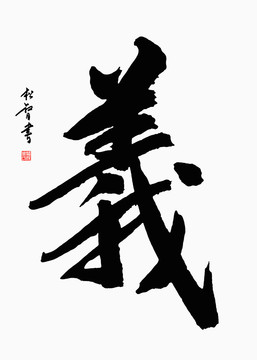 義
松智書